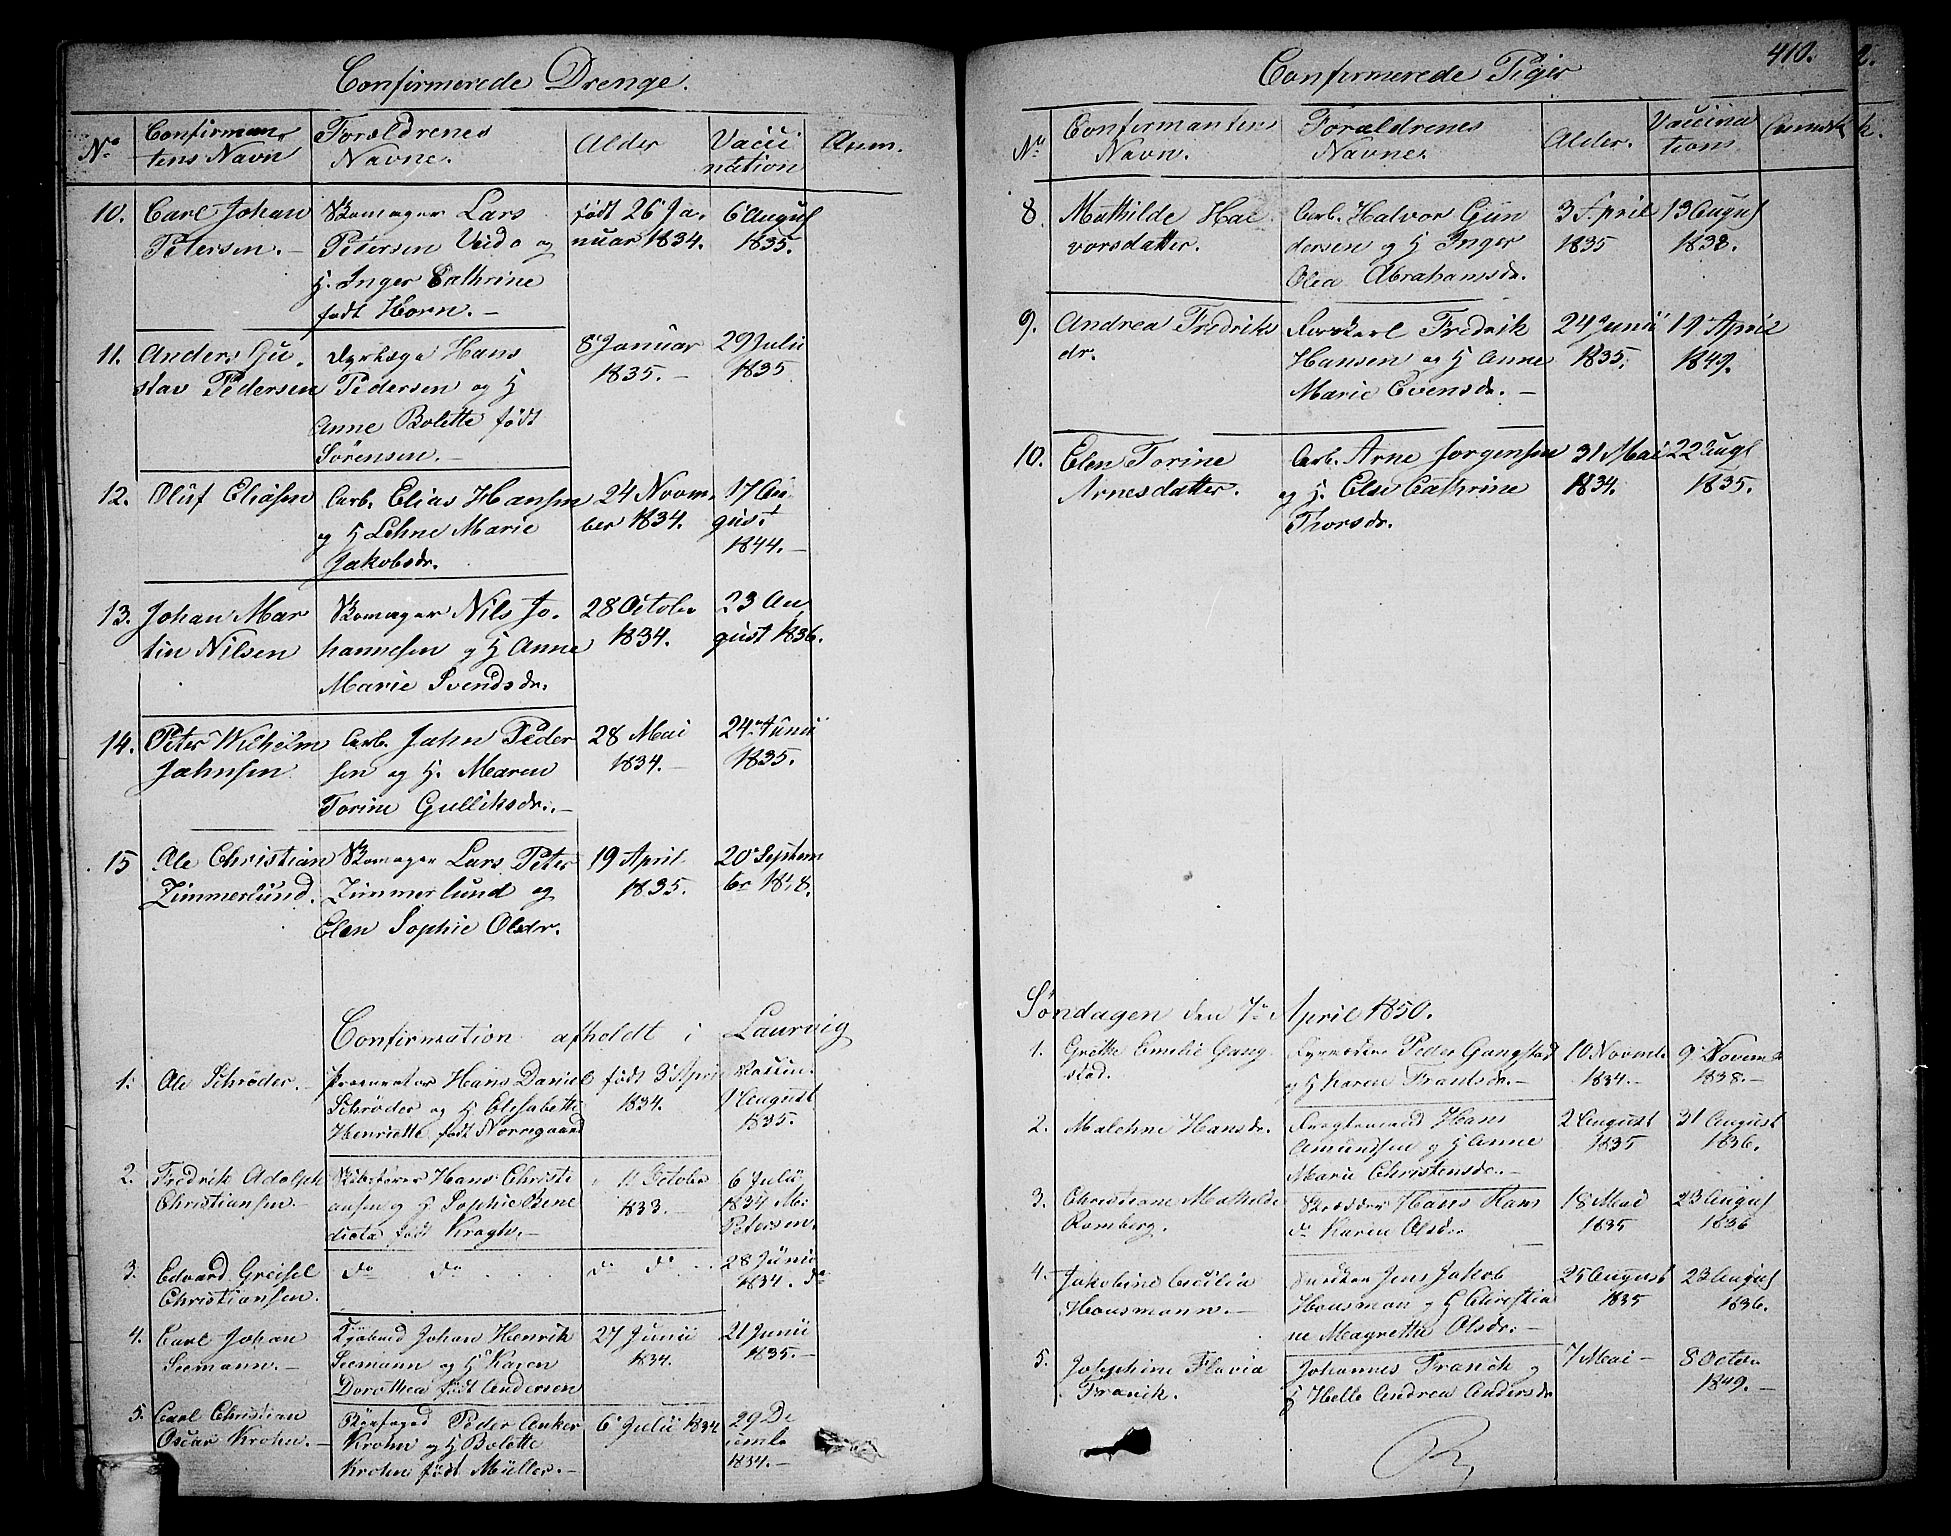 Confirmerede Drenge.
No Confirman tens Navn Forældrenes Navne. Alder Vacci nation Anm.
10. Carl Johan Petersen. —
Skomager Lars
Petersen Veido og
H. Inger Cathrine
født Horn. —
født 26 Ja-
nuar 1834.
6 August
1835.
11. Anders Gu-
stav Pedersen
Hans
Pedersen og H
Anne Bolette født
Sörensen. —
8 Januar
1835. —
29 Julii
1835
12. Oluf Eliasen
Arb. Elias Hansen
og H Lehne Marie
Jakobsdr.
24 Novem
ber 1834.
17 Au
gust
1844. —
13. Johan Mar
tin Nilsen
Skomager Nils Jo-
hannesen og H Anne
Marie Svendsdr.
28 October
1834.
23 Au
gust 1836.
14. Peter Wilhelm
Jahnsen
Arb. Jahn Peder
sen og H. Maren
Torine Gulliksdr. —
28 Mai
1834. —
24 Junii
1835.
15 Ole Christian
Zimmerlund.
Skomager Lars Peter
Zimmerlund og
Elen Sophie Olsdr.
19 April
1835.
20 Septem
ber
Confirmation afholdt i Laurvig
1. Ole Schrøder. —
Procurator Hans Daniel
Schrøder og H Elisabeth
Henriette født Norregaard
født 3 April
1834.
Vaccin.
August
1835.
2. Fredrik Adolph
Christiansen. —
Skibsfører Hans Christi
ansen og H Sophie Bene
dicta født Kragh. —
October
1833. —
6 Julii
1834 M.
Petersen.
3. Edvard Greisel
Christiansen.
do do
do do
28 Junii
1834. do
4. Carl Johan
Seemann. —
Johan Henrik
Seemann og H Karen
Dorothea født Andersen
27 Junii
1834.
21 Junii
1835. —
5. Carl Christian
Oscar Krohn. —
Peder Anker
Krohn og H Bolette
Krohn født Müller. —
6 Julii 1834
29 De
cemb
1834. —
410.
Confirmerede Piger
No Confirmantens Navn. Forældrenes Navne. Alder. Vaccina tions
8. Mathilde Hal
vorsdatter.
Arb. Halvor Gun
dersen og H Inger
Olea Abrahamsdr.
3 April
1835
13 August
1838.
9. Andrea Fredriks
dr.
Fredrik
Hansen og H Anne
Marie Evensdr. —
24 Junii
1835.
19 April
1849.
10. Elen Torine
Arnesdatter.
Arb. Arne Jorgensen
og H. Else Cathrine
Thorsdr.
31 Mai
1834.
22 Augs
1835.
Søndagen den 7 April 1850.
1. Grethe Emelie Gang
stad.
Peder Gangstad
og H Karen Frantsdr. —
10 Novemb
1834. —
9 Novemb
1838. —
2. Malehne Hansdr.
Hans
Amundsen og H Anne
Marie Christensdr. —
2 August
1835
31 August
1836.
3. Christiane Mathilde
Romberg.
Skrædder Hans Rom
Karen Olsdr. —
18 Mai
1835
23 August
1836
4. Jakobine Cecilia
Housmann. —
Jens Jakob
Housman og H Christia
ne Magrethe Olsdr. —
25 August
1835
23 August
1836.
5. Josephine Flavia
Franck.
Johannes Franck og
H Helle Andrea Andersdr
7 Mai —
8 Octob
1849. —